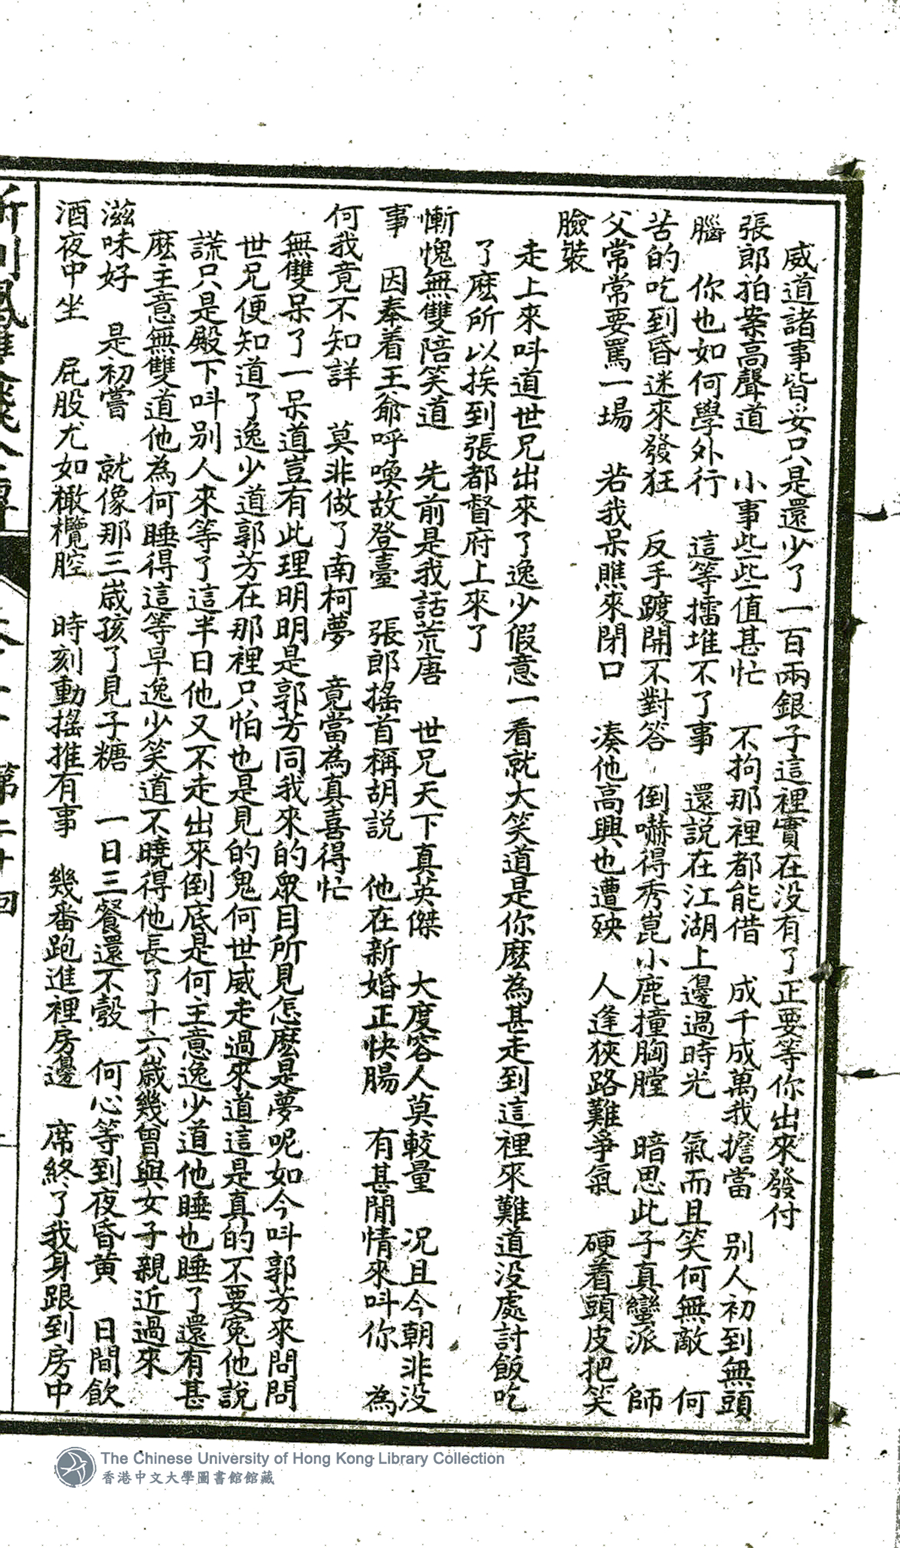 威道諸事皆妥只是還少了一百兩銀子這裡實在没有了正要等你出來發付
張郎拍案高聲道　小事些些值甚忙　不拘那裡都能借　成千成萬我擔當　別人初到無頭
腦　你也如何學外行　這等擂堆不了事　還説在江湖上邊過時光　氣而且笑何無敵　何
苦的吃到昏迷來發狂　反手踱開不對答　倒嚇得秀崑小鹿撞胸膛　暗思此子真蠻派　師
父常常要罵一場　若我呆瞧來閉口　凑他高興也遭殃　人逢狹路難爭氣　硬着頭皮把笑
臉裝
走上來呌道世兄出來了逸少假意一看就大笑道是你麽為甚走到這裡來難道没處討飯吃
了麽所以挨到張都督府上來了
慚愧無雙陪笑道　先前是我話荒唐　世兄天下真英傑　大度容人莫較量　况且今朝非没
事　因奉着王爺呼喚故登臺　張郎搖首稱胡説　他在新婚正快腸　有甚閒情來呌你　為
何我竟不知詳　莫非做了南柯夢　竟當為真喜得忙
無雙呆了一呆道豈有此理明明是郭芳同我來的衆目所見怎麽是夢呢如今呌郭芳來問問
世兄便知道了逸少道郭芳在那裡只怕也是見的鬼何世威走過來道這是真的不要寃他説
謊只是殿下呌別人來等了這半日他又不走出來倒底是何主意逸少道他睡也睡了還有甚
麽主意無雙道他為何睡得這等早逸少笑道不曉得他長了十六歲幾曾與女子親近過來
滋味好　是初嘗　就像那三歲孩了見子糖　一日三餐還不彀　何心等到夜昏黃　日間飲
酒夜中坐　屁股尤如橄欖腔　時刻動搖推有事　幾番跑進裡房邊　席終了我身跟到房中
第二十四
The Chinese University of Hong Kong Library Collection
香港中文大學圖書館館藏